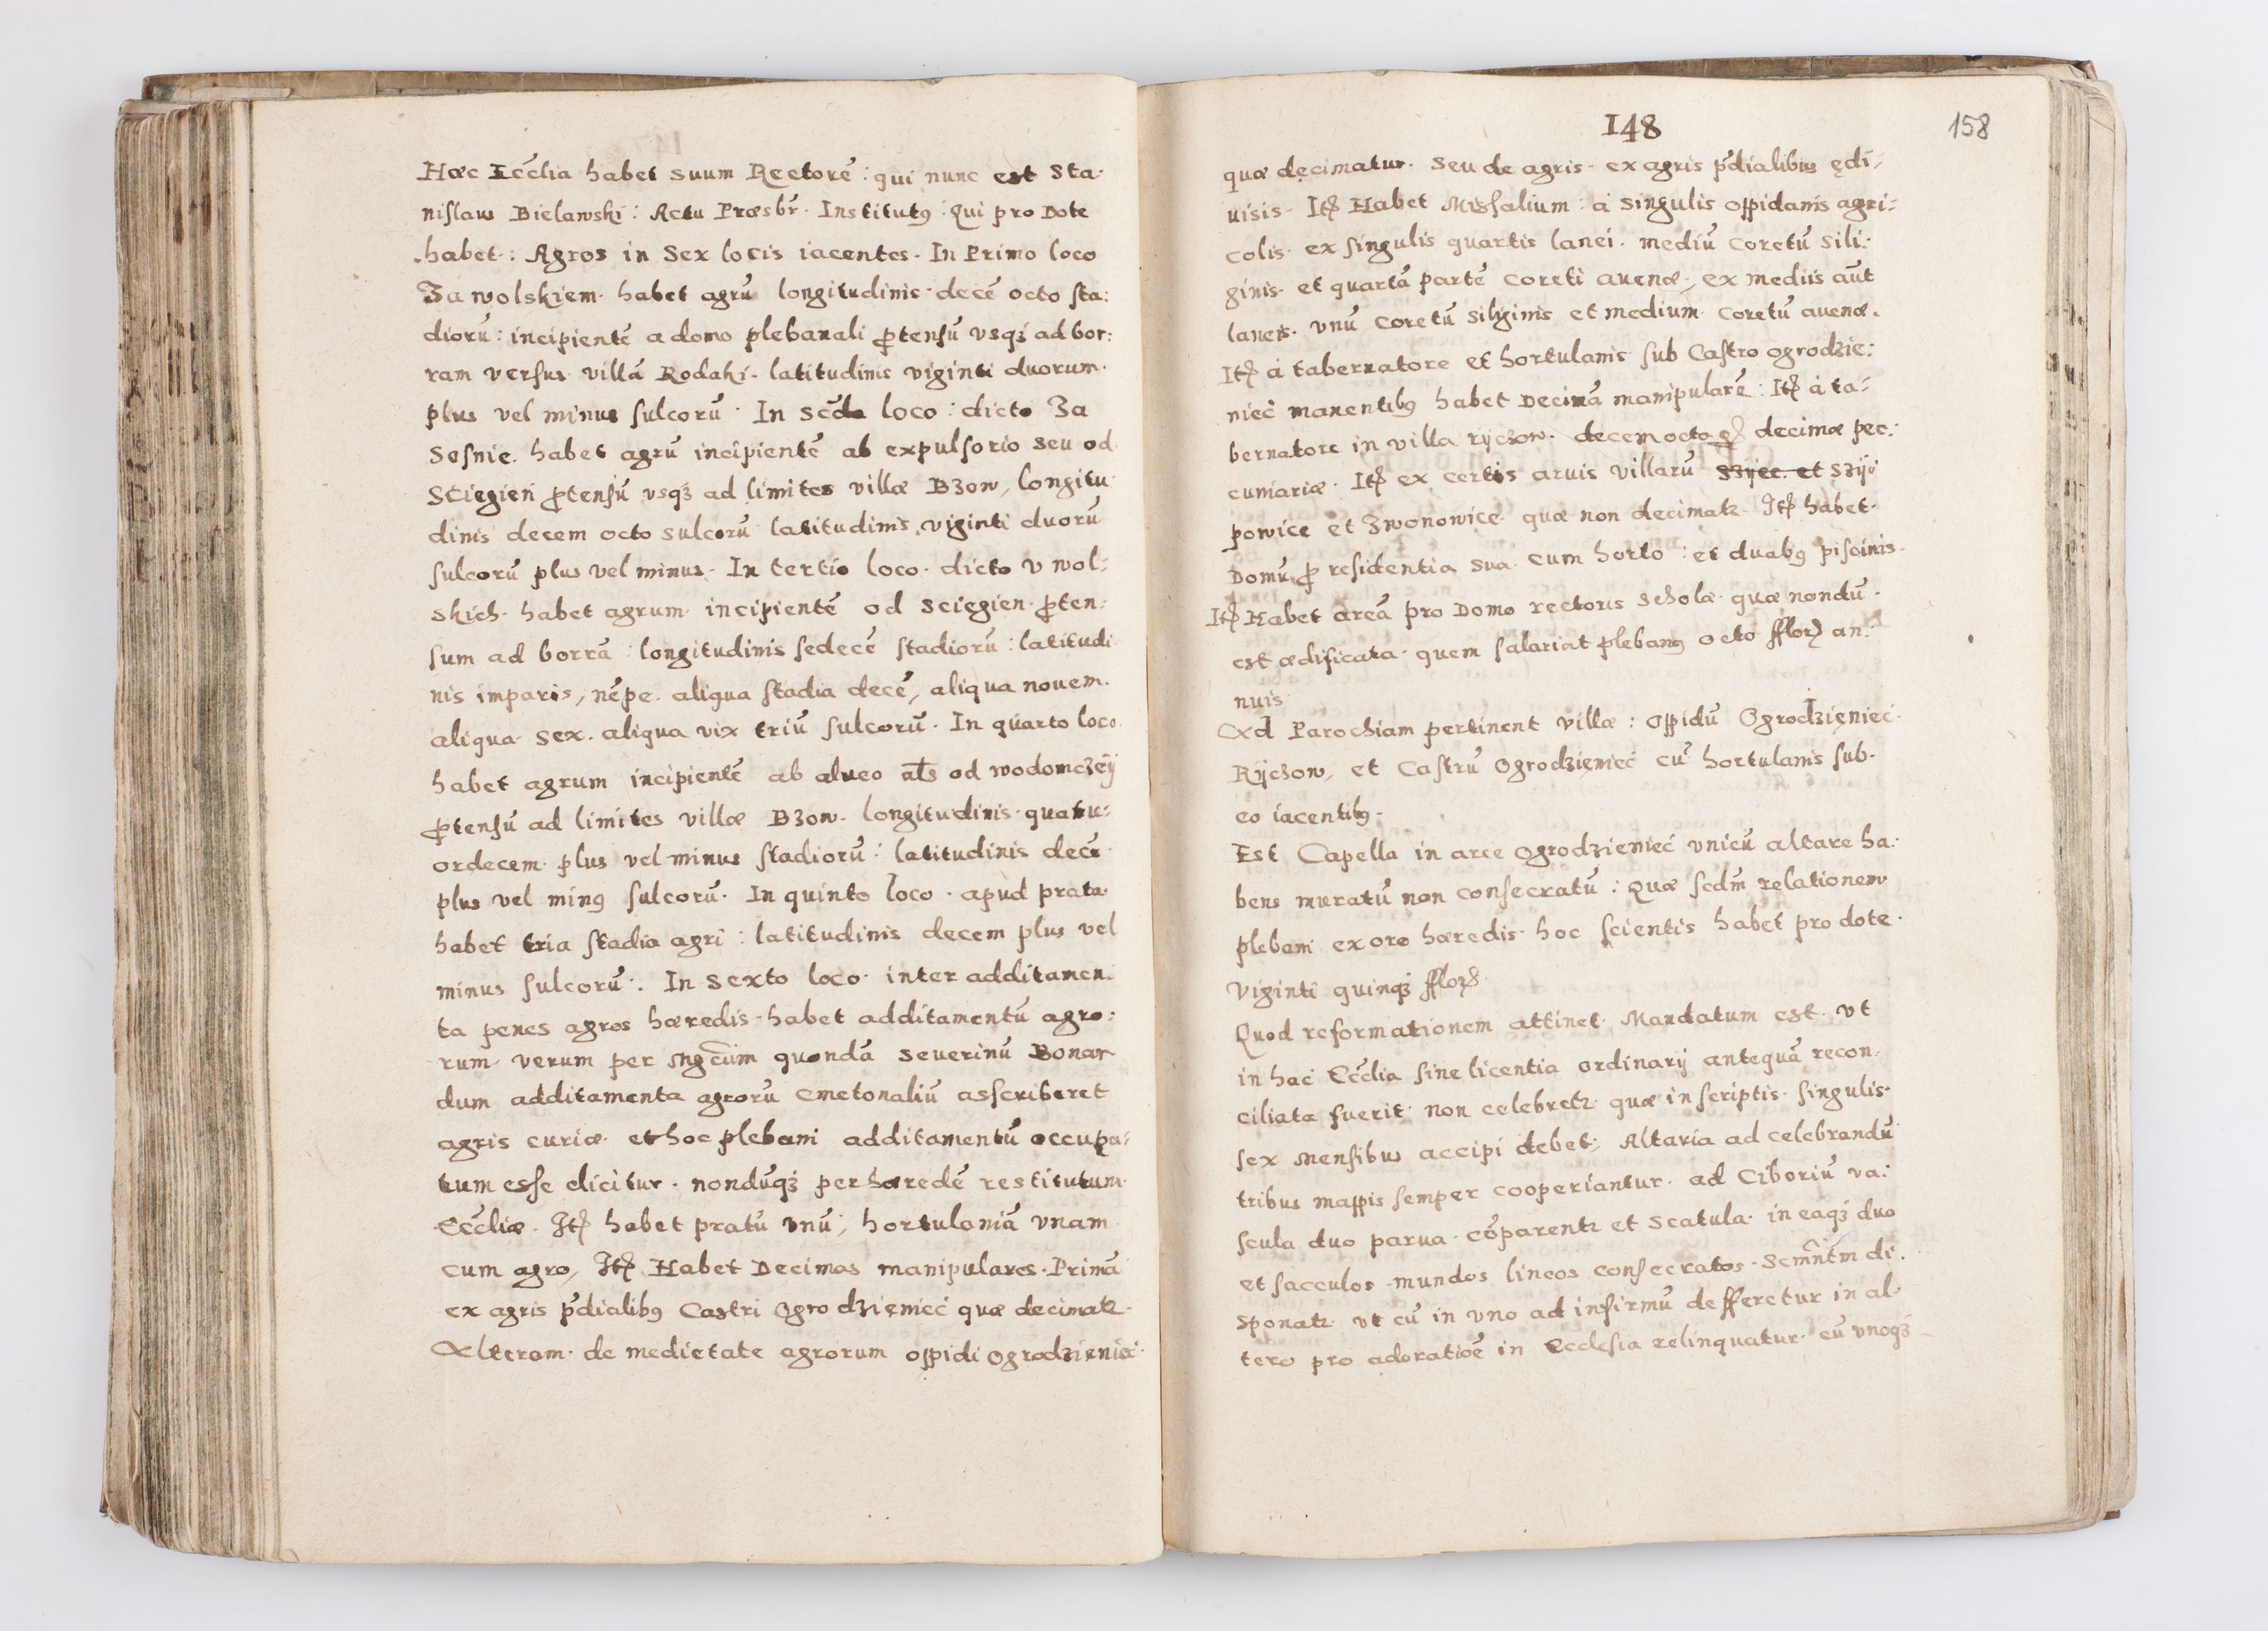 Hæc Ecc̄lia habet suum Rectorē: qui nunc est Sta-
nislaus Bielawski: Actu Præsbr̄. Institutꝰ: Qui pro Dote
habet: Agros in Sex locis iacentes. In Primo loco
Za wolskiem habet agrū longitudinis decē octo sta:
diorū: incipientē a domo plebanali ꝓtensū usqꝫ ad bor:
ram versus villā Rodaki. latitudinis viginti duorum
plus vel minus sulcorū. In Sc̄do loco: dicto Za
Sosnie. habet agrū incipientē ab expulsorio seu od
Sciegien ꝓtensū usqꝫ ad limites villæ Bzow, longitu
dinis decem octo sulcorū latitudinis viginti duorū
sulcorū plus vel minus. In tertio loco dicto v wol-
skich. habet agrum incipientē od sciegien ꝓten:
sum ad borrā: longitudinis sedecē stadiorū: latitudi
nis imparis, nēpe. aliqua stadia decē, aliqua nouem.
aliqua sex. aliqua vix triū sulcorū. In quarto loco
habet agrum incipientē ab alueo al̄s od wodomczeÿ
ꝓtensū ad limites villæ Bzow. longitudinis quatu-
ordecem plus vel minus stadiorū: latitudinis decē
plus vel minꝰ sulcorū. In quinto loco. apud prata
habet tria stadia agri: latitudinis decem plus vel
minus sulcorū. In Sexto loco. inter additamen.
ta penes agros hæredis habet additamentū agro:
rum. verum per Mgc̄um quondā Seuerinū Bonar
dum additamenta agrorū cmetonaliū asscriberet
agris curiæ. et hoc plebani additamentū occupa-
tum esse dicitur. nondūqꝫ per hæredē restitutum
Ecc̄liæ. Itꝫ habet pratū vnū, hortulaniā vnam
cum agro, Itꝫ Habet Decimas manipulares. Primā
ex agris p̄dialibꝰ Castri Ogrodzieniec quæ decimatꝛ
Alteram. de medietate agrorum oppidi Ogrodzieniec
148
158
quæ decimatur. Seu de agris ex agris p̄dialibus ędi-
uisis. Itꝫ Habet Missalium: à singulis oppidanis agri:
colis. ex singulis quartis lanei. mediū coretū sili:
ginis. et quartā partē coreti auenæ, ex mediis aūt
laneis. vnū coretū siliginis et medium coretū auenæ.
Itꝫ à tabernatore et hortulanis sub Castro ogrodzie:
niec manentibꝰ habet Decimā manipularē: Itꝫ à ta-
bernatore in villa ryczow. decem octo gꝫ decimæ pec:
cuniariæ. Itꝫ ex certis aruis villarū Szÿec. et Szÿ
powice et Zwonowice quæ non decimatꝛ. Itꝫ habet
Domū ꝓ residentia sua cum horto: et duabꝰ piscinis
Itꝫ Habet areā pro Domo rectoris scholæ quæ nondū.
est ædificata. quem salariat plebanꝰ octo fflorꝫ an:
nuis
Ad Parochiam pertinent villæ: oppidū Ogrodzięniec
Rÿczow, et Castrū Ogrodzięniec cū hortulanis sub.
eo iacentibꝰ.
Est Capella in arce Ogrodzieniec vnicū altare ha:
bens muratū non consecratū: Quæ scdm̄ relationem
plebani ex ore hæredis hoc scientis habet pro dote.
viginti quinqꝫ fflorꝫ
Quod reformationem attinet. Mandatum est. vt
in hac Ecc̄lia sine licentia ordinarij antequā recon-
ciliata fuerit non celebretꝛ quæ in scriptis singulis
sex mensibus accipi debet; Altaria ad celebrandū
tribus mappis semper cooperiantur. ad Ciboriū va:
scula duo parua. cōparentꝛ et scatula. in eaqꝫ duo
et sacculos mundos lineos consecratos. Scmn̄tm di.
sponatꝛ vt cū in vno ad infirmū defferetur in al.
tero pro adoratiōe in Ecclesia relinquatur. cū vnoqꝫ